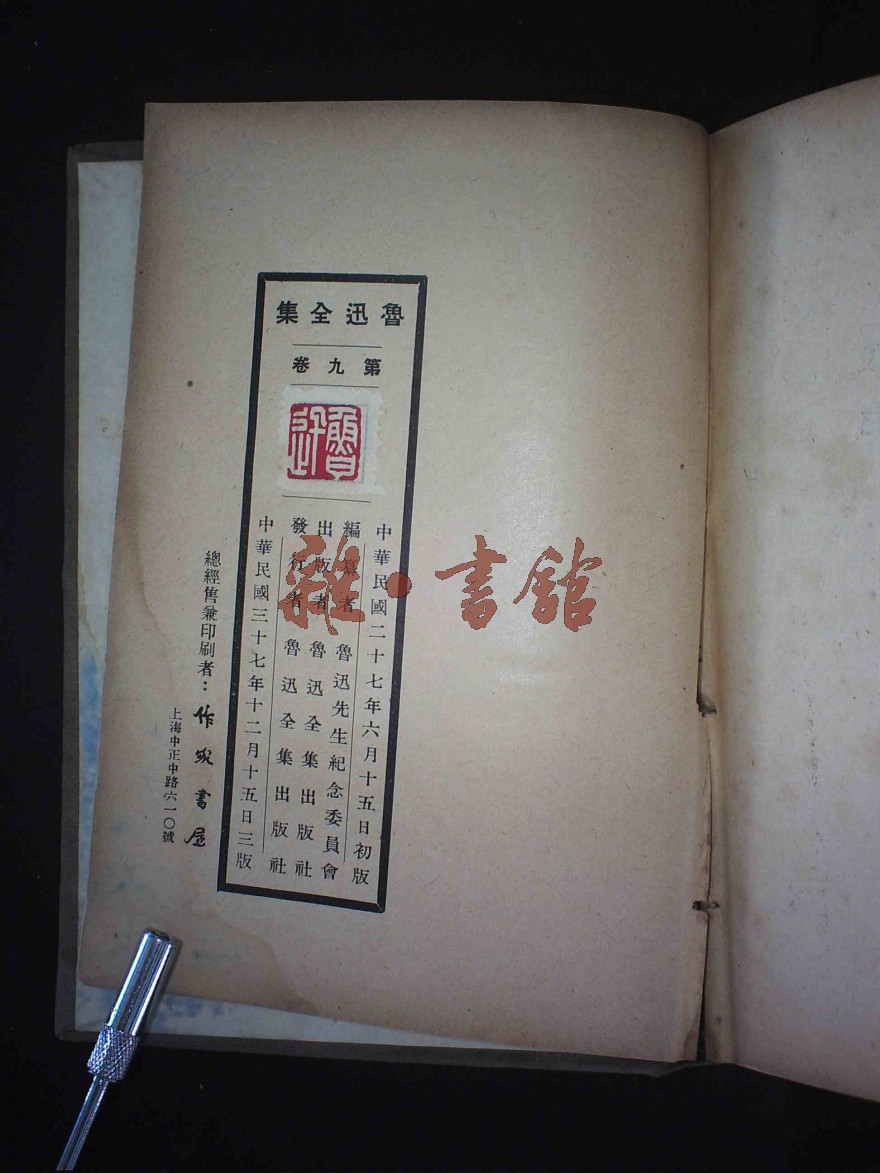 魯迅全集
第九卷
魯迅
中華民國二十七年六月十五日初版
編纂者 魯迅先生紀念委員會
出版者 魯迅全集出版社
發行者 魯迅全集出版社
中華民國三十七年十二月十五日三版
總經售兼印刷者：作家書屋
上海中正中路六一〇號
雜·書館